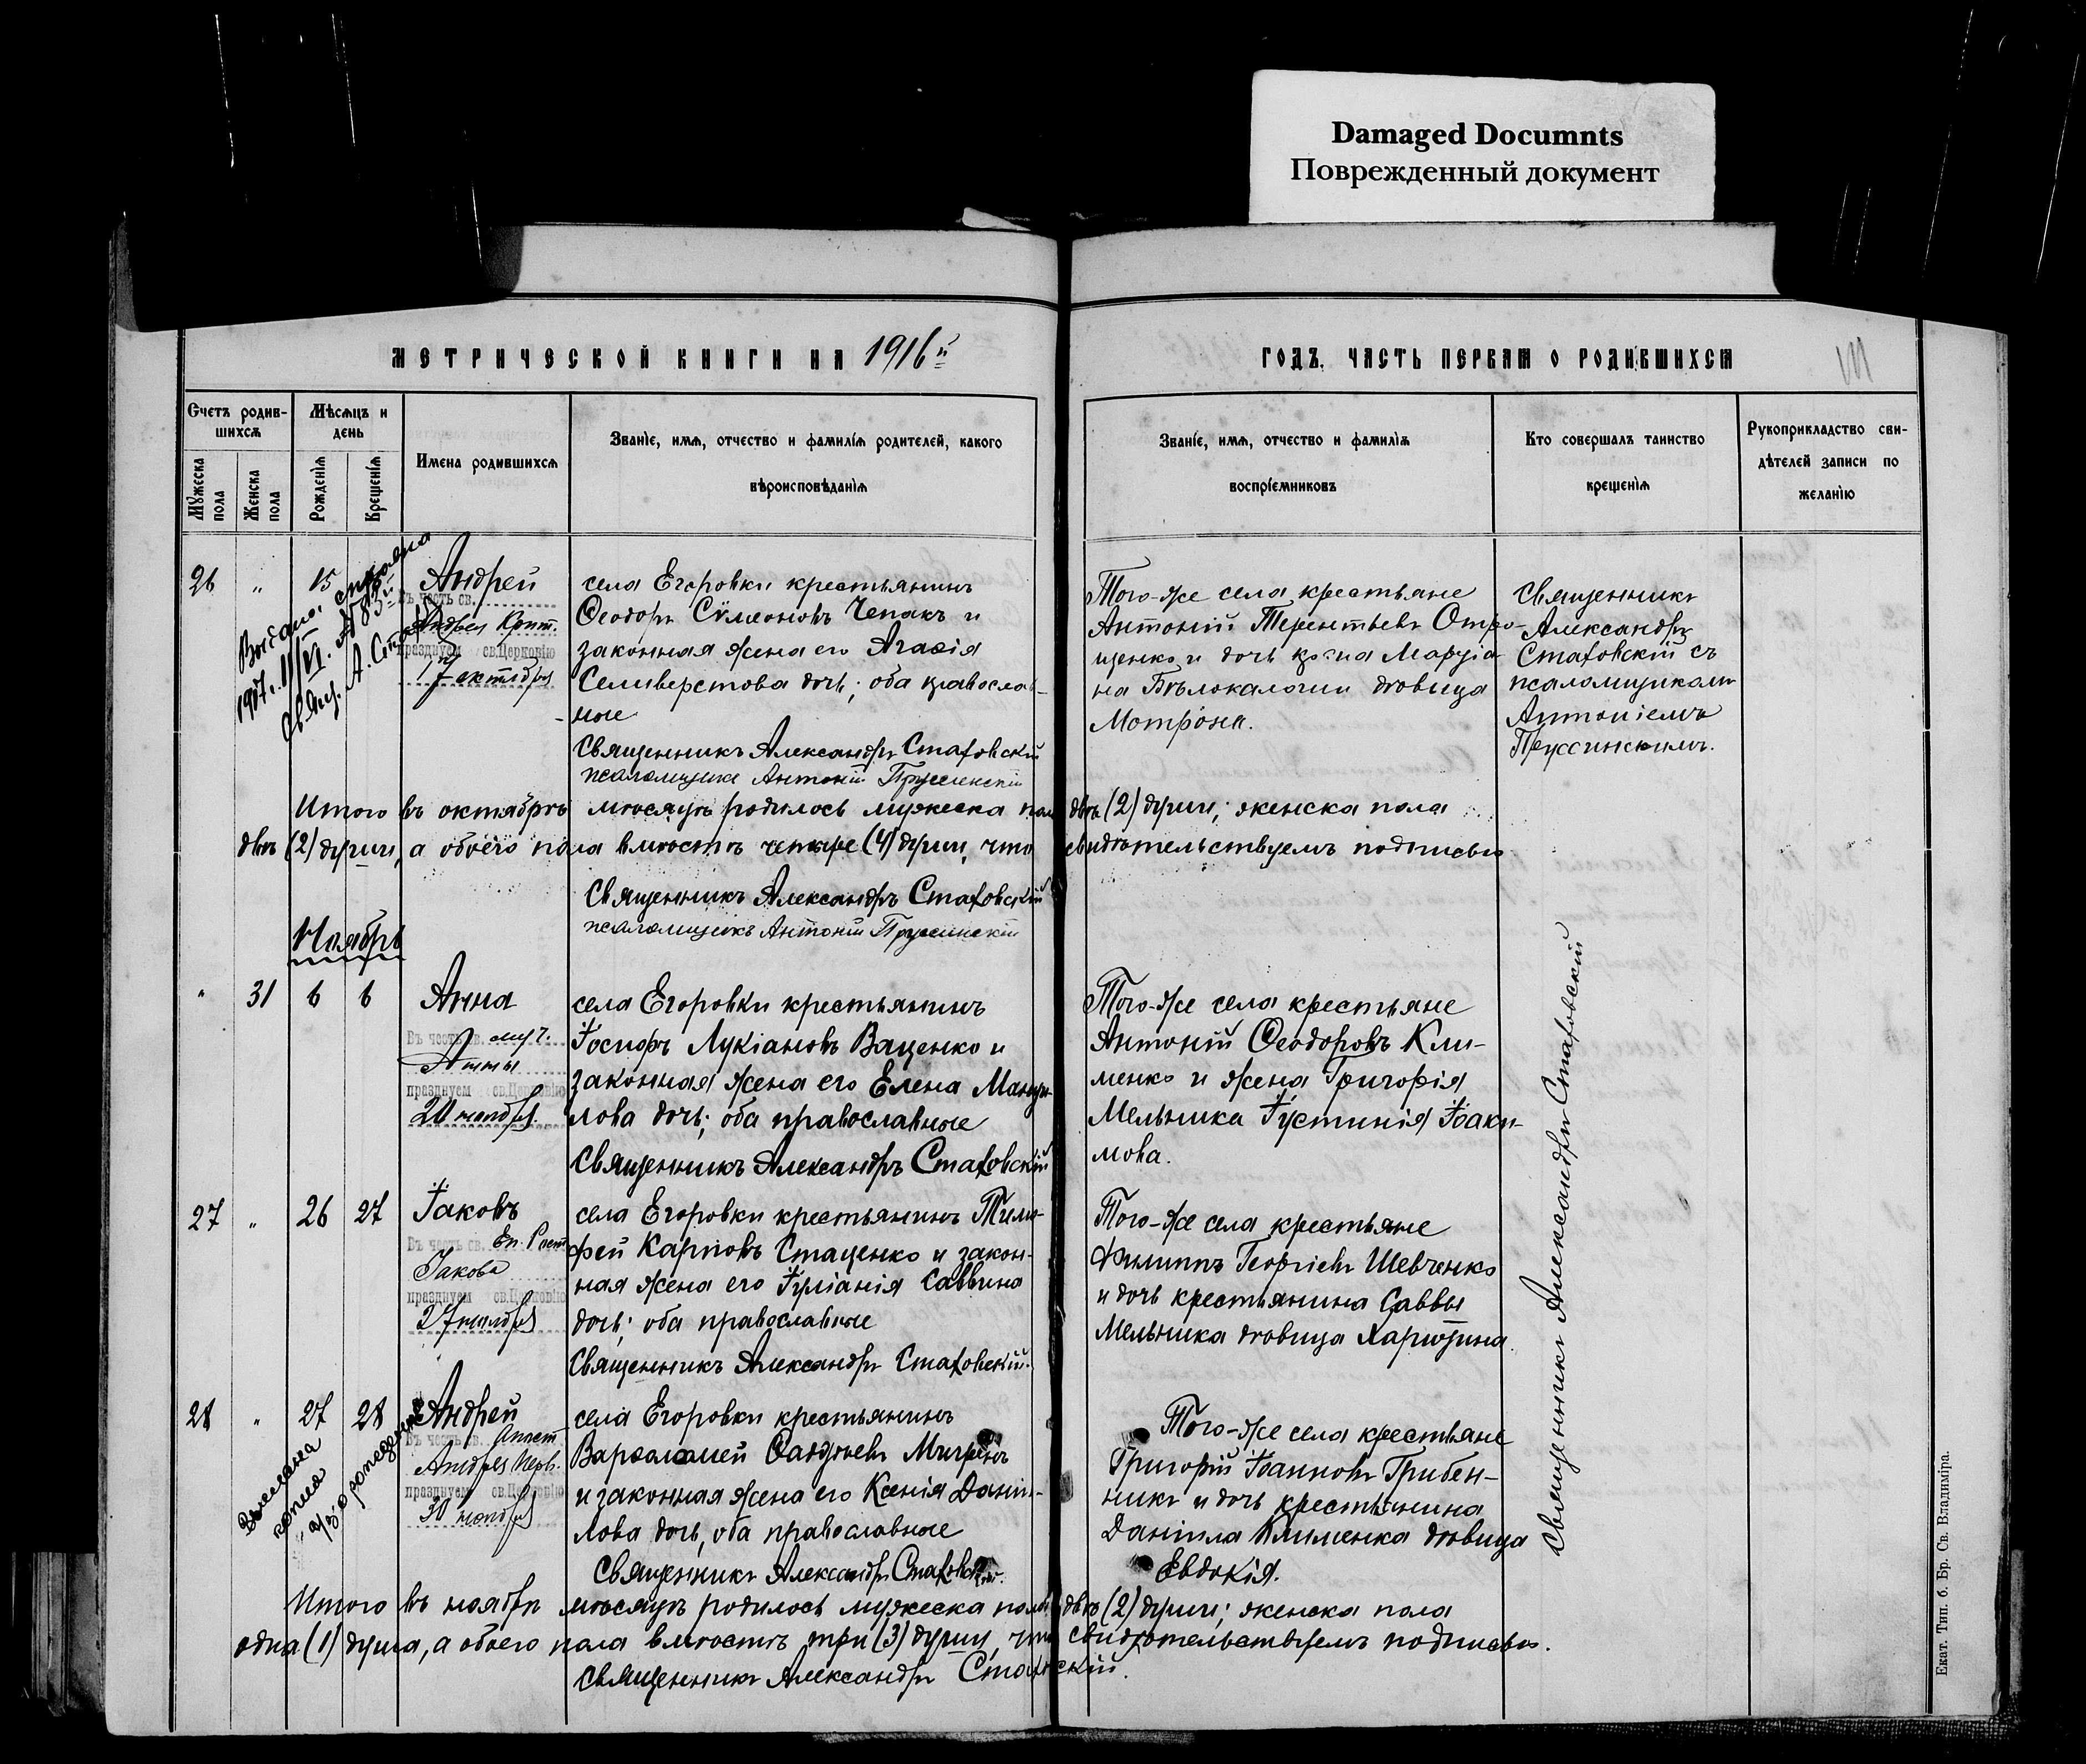 Damaged Documnts
Поврежденный документ
МЕТРИЧЕСКОЙ КНИГИ НА 1916й
ГОДЪ. ЧАСТЬ ПЕРВАЯ О РОДИВШИХСЯ
Счетъ родив-
шихся
Мѣсяцъ и
день
Мужеска
пола
Женска
пола
Рожденія
Крещенія
Имена родившихся
Званіе, имя, отчество и фамилія родителей, какого
вѣроисповѣданія
Званіе, имя, отчество и фамилія
воспріемниковъ
Кто совершалъ таинство
крещенія
Рукоприкладство сви-
дѣтелей записи по
желанію
26 " 15
Андрей
Въ честь св.
Андрея Крит.
празднуем св.Церковію
17 октября
села Егоровки крестьянинъ
Ѳеодоръ Сѵмеоновъ Чепакъ и
законная жена его Агаѳія
Селиверстова дочь; оба православ-
ные
Священникъ Александръ Стаховскій
псаломщикъ Антоній Пруссинскій
Того-же села крестьяне
Антоній Терентьевъ
дочь
дѣвица
Мотрона.
Священникъ
Александръ
Стаховскій съ
псаломщикомъ
Антоніемъ
Пруссинскимъ.
Итого въ октябрѣ мѣсяцѣ родилось мужеска пола двѣ (2) души; женска пола
двѣ (2) души, а обоего пола вмѣстѣ четыре (4) души, что свидѣтельствуемъ подписью
Священникъ Александръ Стаховскій
псаломщикъ Антоній Пруссинскій
Ноябрь
" 31 6 6
Анна
Въ честь св. муч.
Анны
празднуем св.Церковію
20 ноября
села Егоровки крестьянинъ
Іосифъ Лукіановъ Ваценко и
законная жена его Елена Мануи-
лова дочь; оба православные
Священникъ Александръ Стаховскій
Того-же села крестьяне
Антоній Ѳеодоровъ Кли-
менко и жена Григорія
Мельника Іустинія Іоаки-
мова.
27 " 26 27
Іаковъ
Въ честь св. Еп. Рост.
Іакова
празднуем св.Церковію
27 ноября
села Егоровки крестьянинъ Тимо-
фей Карповъ Стаценко и закон-
ная жена его Іуліанія Саввина
дочь; оба православные
Священникъ Александръ Стаховскій.
Того-же села крестьяне
Филиппъ Георгіевъ Шевченко
и дочь крестьянина Саввы
Мельника дѣвица Харитина.
28 " 27 28
Андрей
Въ честь св. Апост.
Андрея Перв.
празднуем св.Церковію
30 ноября
села Егоровки крестьянинъ
Варѳоломей
и законная жена его Ксенія Даніи-
лова дочь, оба православные
Священникъ Александръ Стаховскій.
Того-же села крестьяне
Григорій Іоанновъ Грибен-
никъ и дочь крестьянина
Даніила Клименка дѣвица
Евдокія.
Священникъ Александръ Стаховскій
Итого въ ноябрѣ мѣсяцѣ родилось мужеска пола двѣ (2) души; женска пола
одна (1) душа, а обоего пола вмѣстѣ три (3) души, что свидѣтельствуемъ подписью.
Священникъ Александръ Стаховскій.
Екат. Тип. б. Бр. Св. Владиміра.